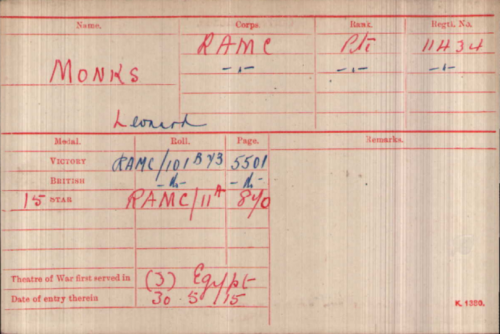 Name. Corps. Rank. Regtl. No.
MONKS RAMC Pte 11434
-"- -"- -"-
Leonard
Medal. Roll. Page. Remarks.
VICTORY RAMC/101 B 43 5501
BRITISH -do- -do-
15 STAR RAMC/11A 840
Theatre of War first served in (3) Egypt
Date of entry therein 30.5/15
K. 1380.